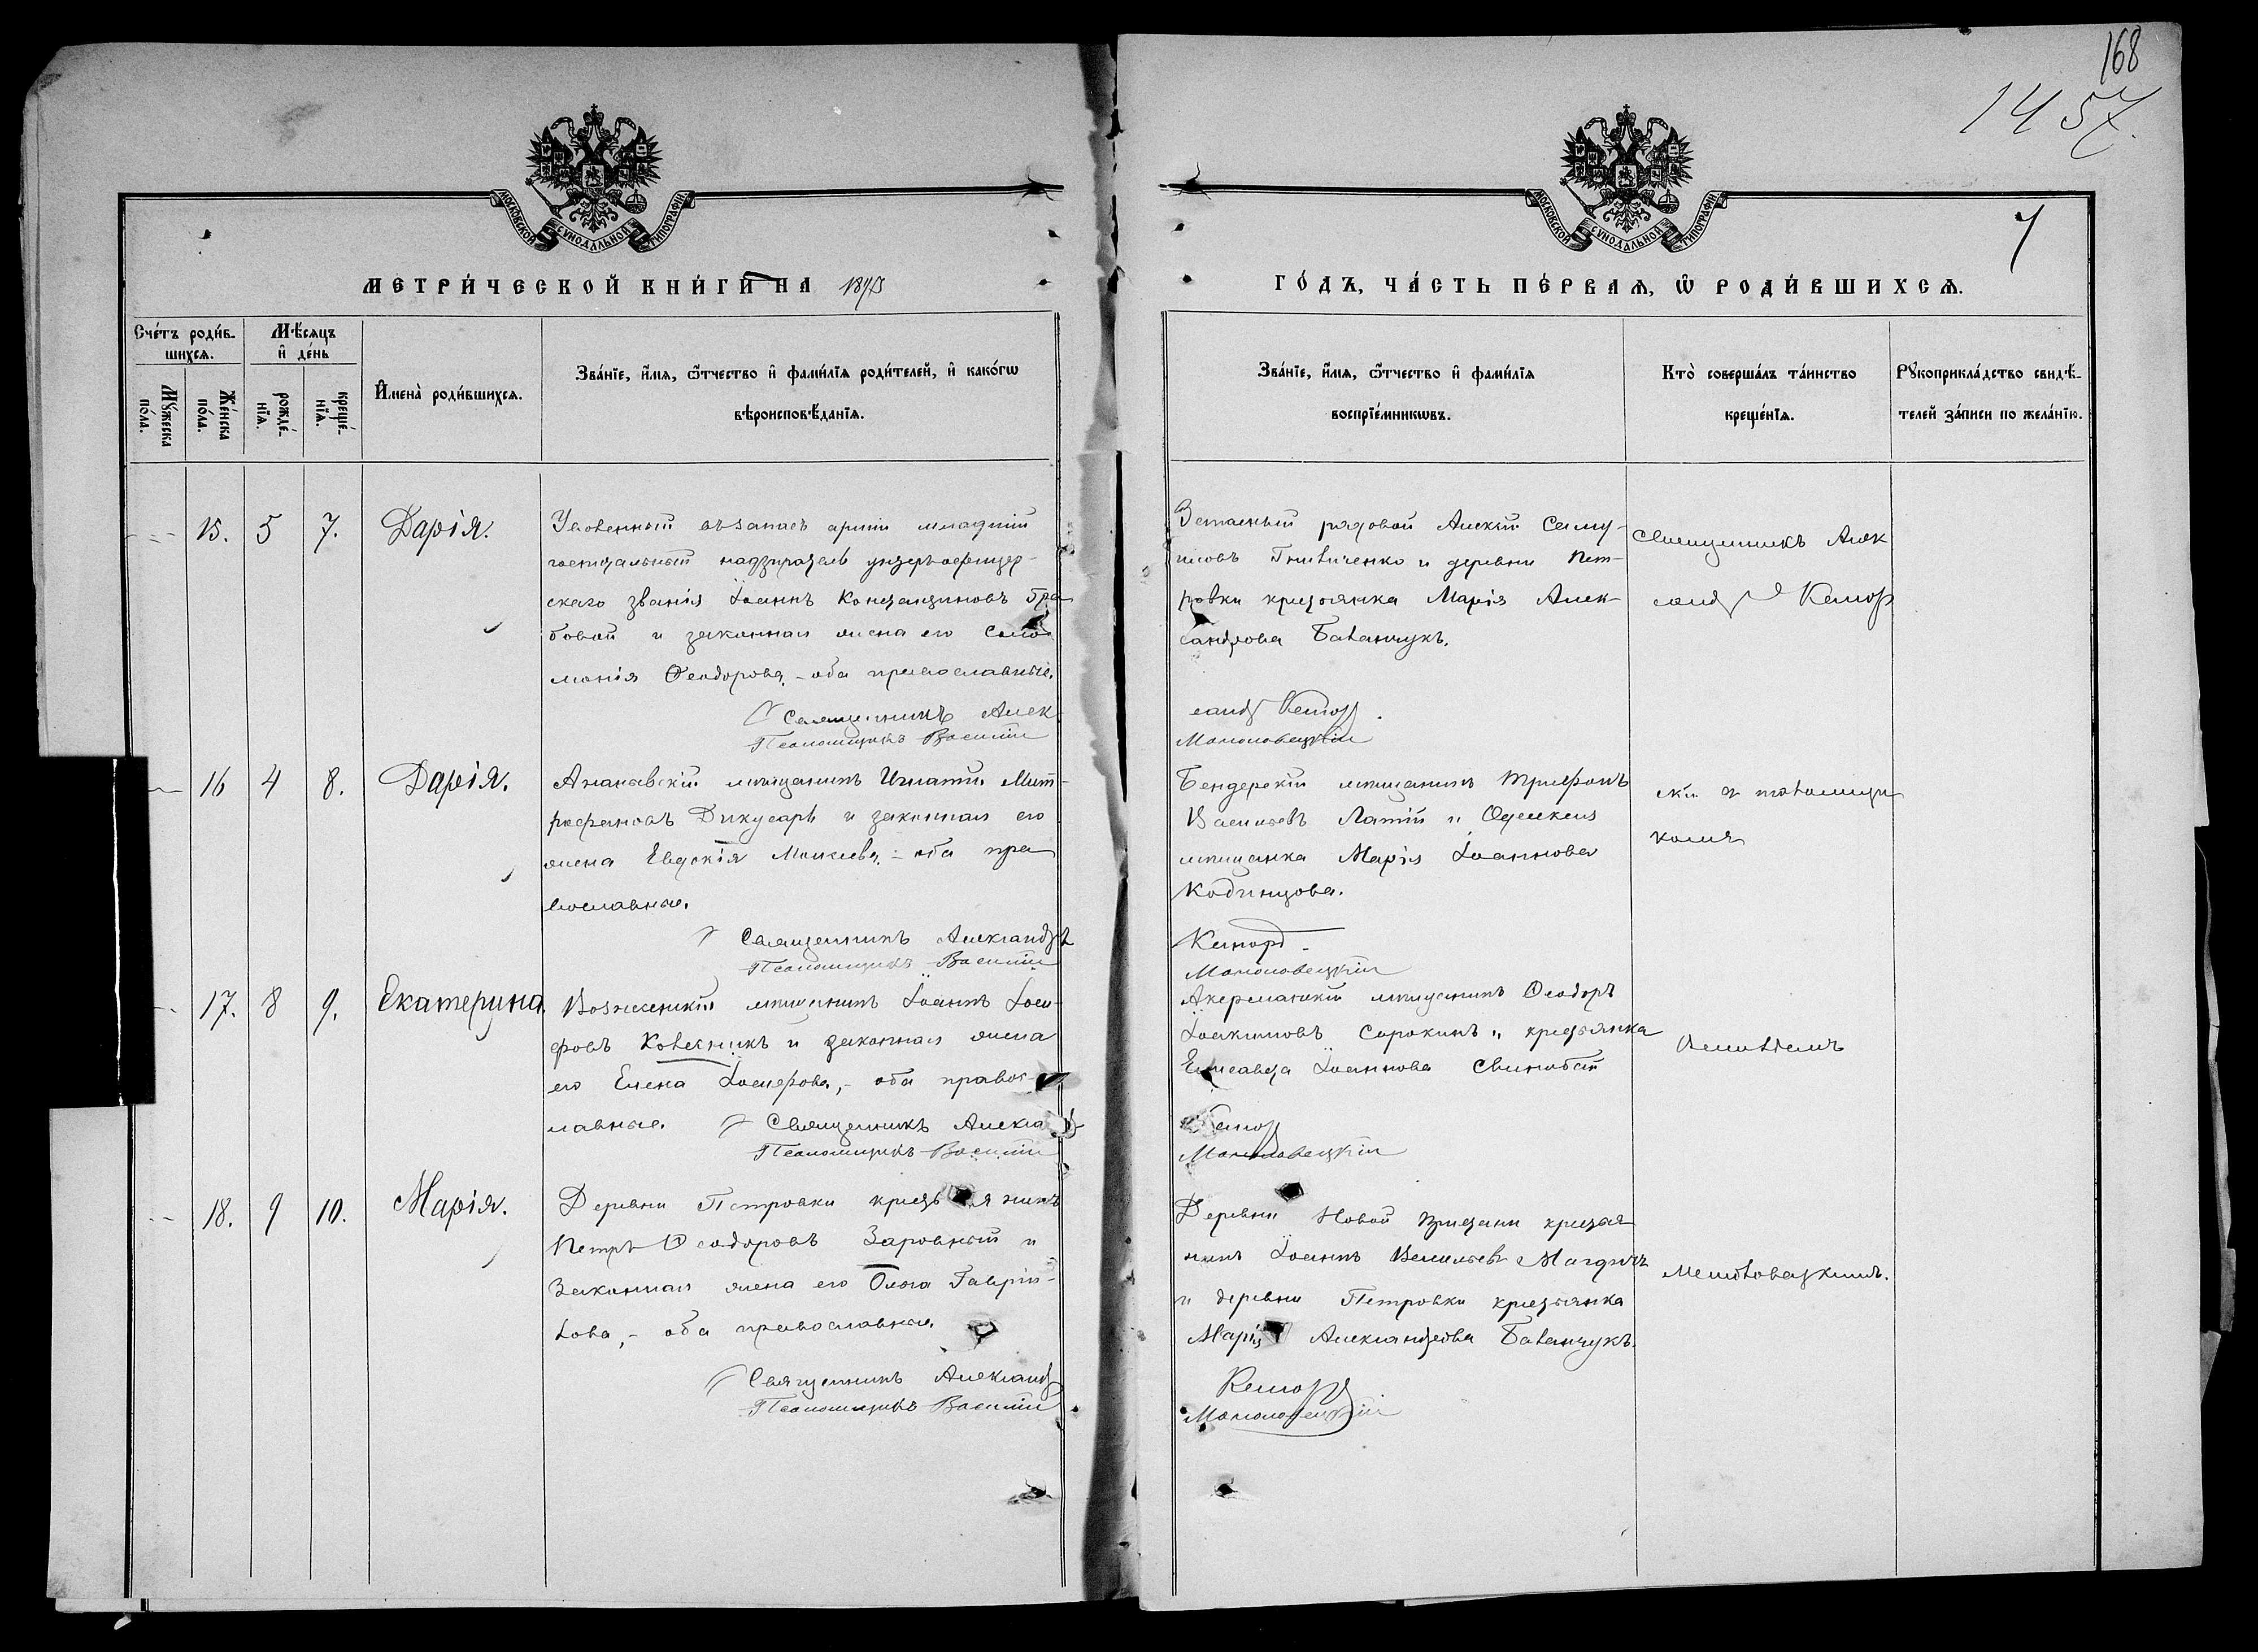 168
1457.
МОСКОВСКОЙ СУНОДАЛЬНОЙ ТИПОГРАФІИ.
МОСКОВСКОЙ СУНОДАЛЬНОЙ ТИПОГРАФІИ.
7
МЕТРИ́ЧЕСКОЙ КНИ́ГИ НА
ГО́ДЪ, ЧА́СТЬ ПЕ́РВАѦ, Ѿ РОДИ́ВШИХСѦ.
Сче́тъ роди́в-
шихсѧ.
Мѣ́сѧцъ
и де́нь
Мꙋ́жеска
по́ла.
Же́нска
по́ла.
рожде́-
нїѧ.
креще́-
нїѧ.
Имена̀ роди́вшихсѧ.
Зва́нїе, и́мѧ, ѻ́тчество и фами́лїѧ роди́телей, и како́гѡ
вѣроисповѣ́данїѧ.
Зва́нїе, и́мѧ, ѻ́тчество и фами́лїѧ
воспрїе́мникѡвъ.
Кто̀ соверша́лъ та́инство
креще́нїѧ.
Рꙋкоприкла́дство свидѣ́-
телей за́писи по жела́нїю.
15. 5 7. Дарія.
Уволенный въ запасъ арміи младшій
госпитальный надзиратель унтеръ-офицер-
скаго званія Іоаннъ Константиновъ Гра
бовой и законная жена его Соло
монія Ѳеодорова, - оба православные.
Священникъ Алек
Псаломщикъ Василій
Запасный рядовой Алексій Саму-
иловъ и деревни Пет-
ровки крестьянка Марія Алек-
сандрова Баванчукъ.
санд
Священникъ Алек
санд
16 4 8. Дарія.
Ананьевскій мѣщанинъ Игнатій Мит-
рофановъ Дикусаръ и законная его
жена Евдокія Моисеева, - оба пра
вославные.
Священникъ Александъ
Псаломщикъ Василій
Бендерскій мѣщанинъ Трифонъ
Васильевъ Латій и Одесская
мѣщанка Марія Іоаннова
Кодинцова.
17. 8 9. Екатерина.
Вознесенскій мѣщанинъ Іоаннъ Іоси-
фовъ Ковесникъ и законная жена
его Елена Іосифова, - оба правос-
лавные. Священникъ Алекса
Псаломщикъ Василій
Акерманскій мѣщанинъ Ѳеодоръ
Іоакимовъ Сорокинъ и крестьянка
Елисавета Іоаннова
Василіемъ
18. 9 10. Марія.
Деревни Петровки крестьянинъ
Петръ Ѳеодоровъ Заровный и
Законная жена его Ольга Гаврі-
лова, - оба православные.
Священникъ Александ
Псаломщикъ Василій
Деревни Новой крестья
нинъ Іоаннъ Васильевъ
и деревни Петровки крестьянка
Марія Александрова Баванчукъ.